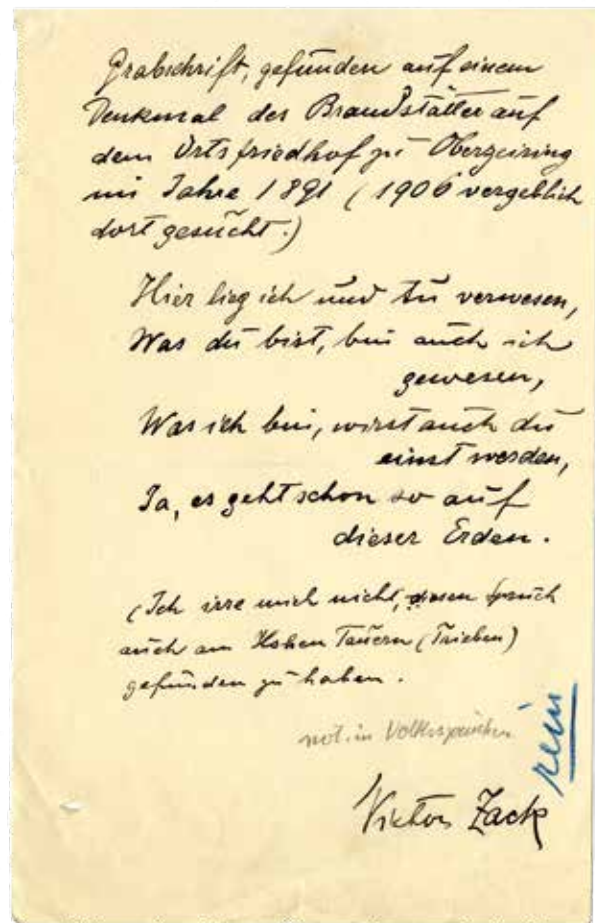 Grabschrift, gefunden auf einem
Denkmal der Brandstätter auf
dem Ortsfriedhof zu Oberzeiring
im Jahre 1891 (1906 vergeblich
dort gesucht.)
Hier lieg ich und tu verwesen,
Was du bist, bin auch ich
gewesen,
Was ich bin, wirst auch du
einst werden,
Ja, es geht schon so auf
dieser Erden.
(Ich irre mich nicht, diesen Spruch
auch am Hohen Tauern (Trieben)
gefunden zu haben.
not. in Volkssprüchen
rein
Viktor Zack